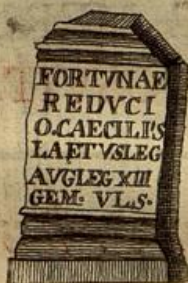 FORTVNAE
REDVCI
O.CAECILI'S
LAETVSLEG
AVGLEGXIII
GEM· VL.S·